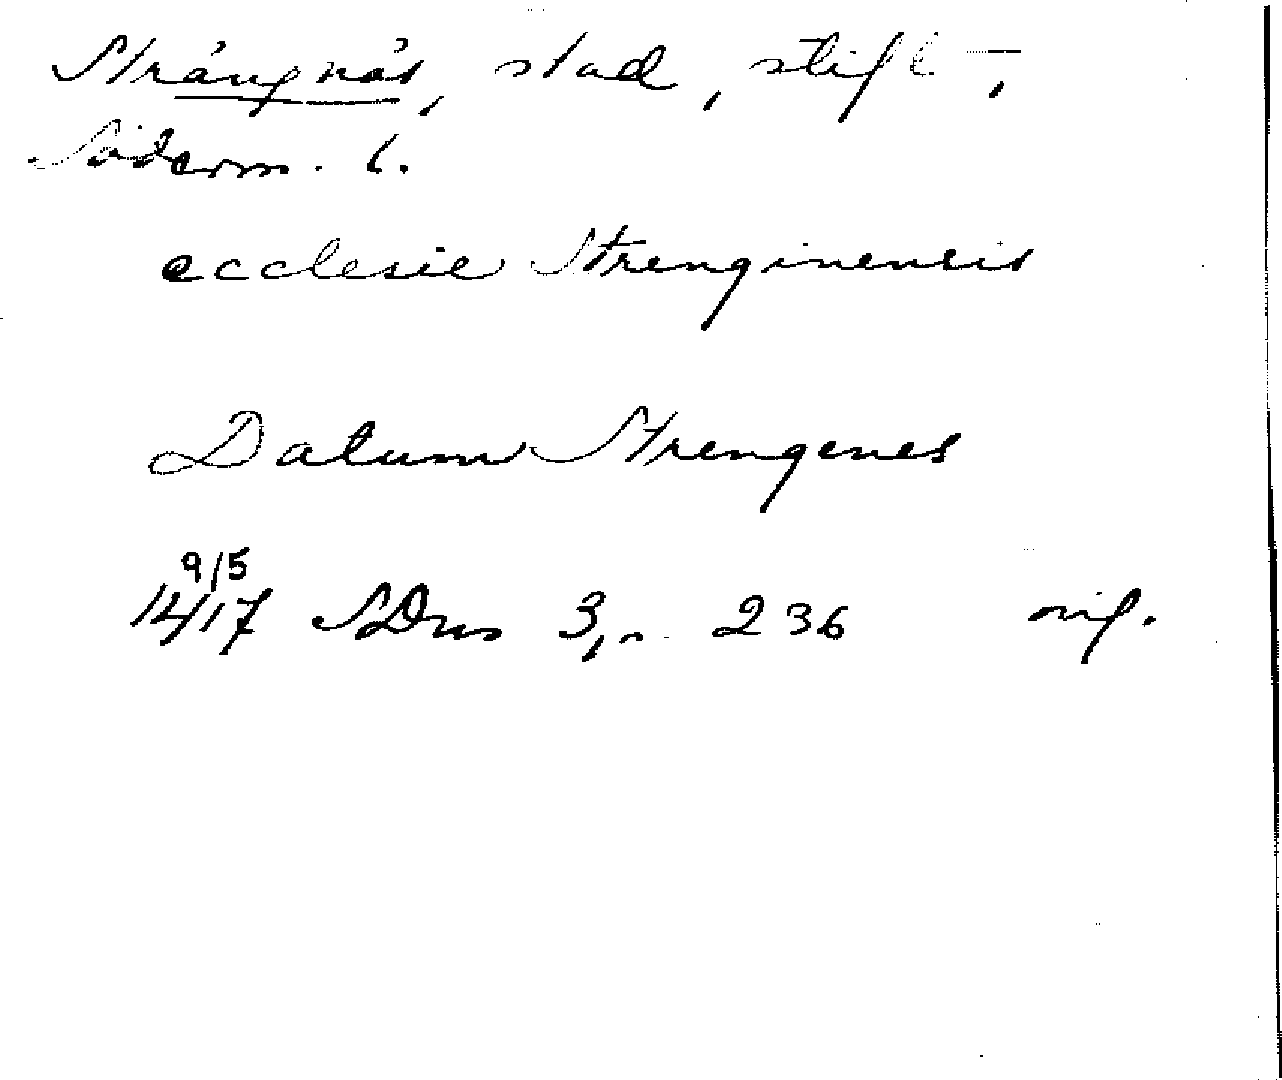 Strängnäs, stad, stift,
Söderm. l.
ecclesie Strenginensis
Datum Strengenes
9/5
1417 SDns 3, 236 orig.